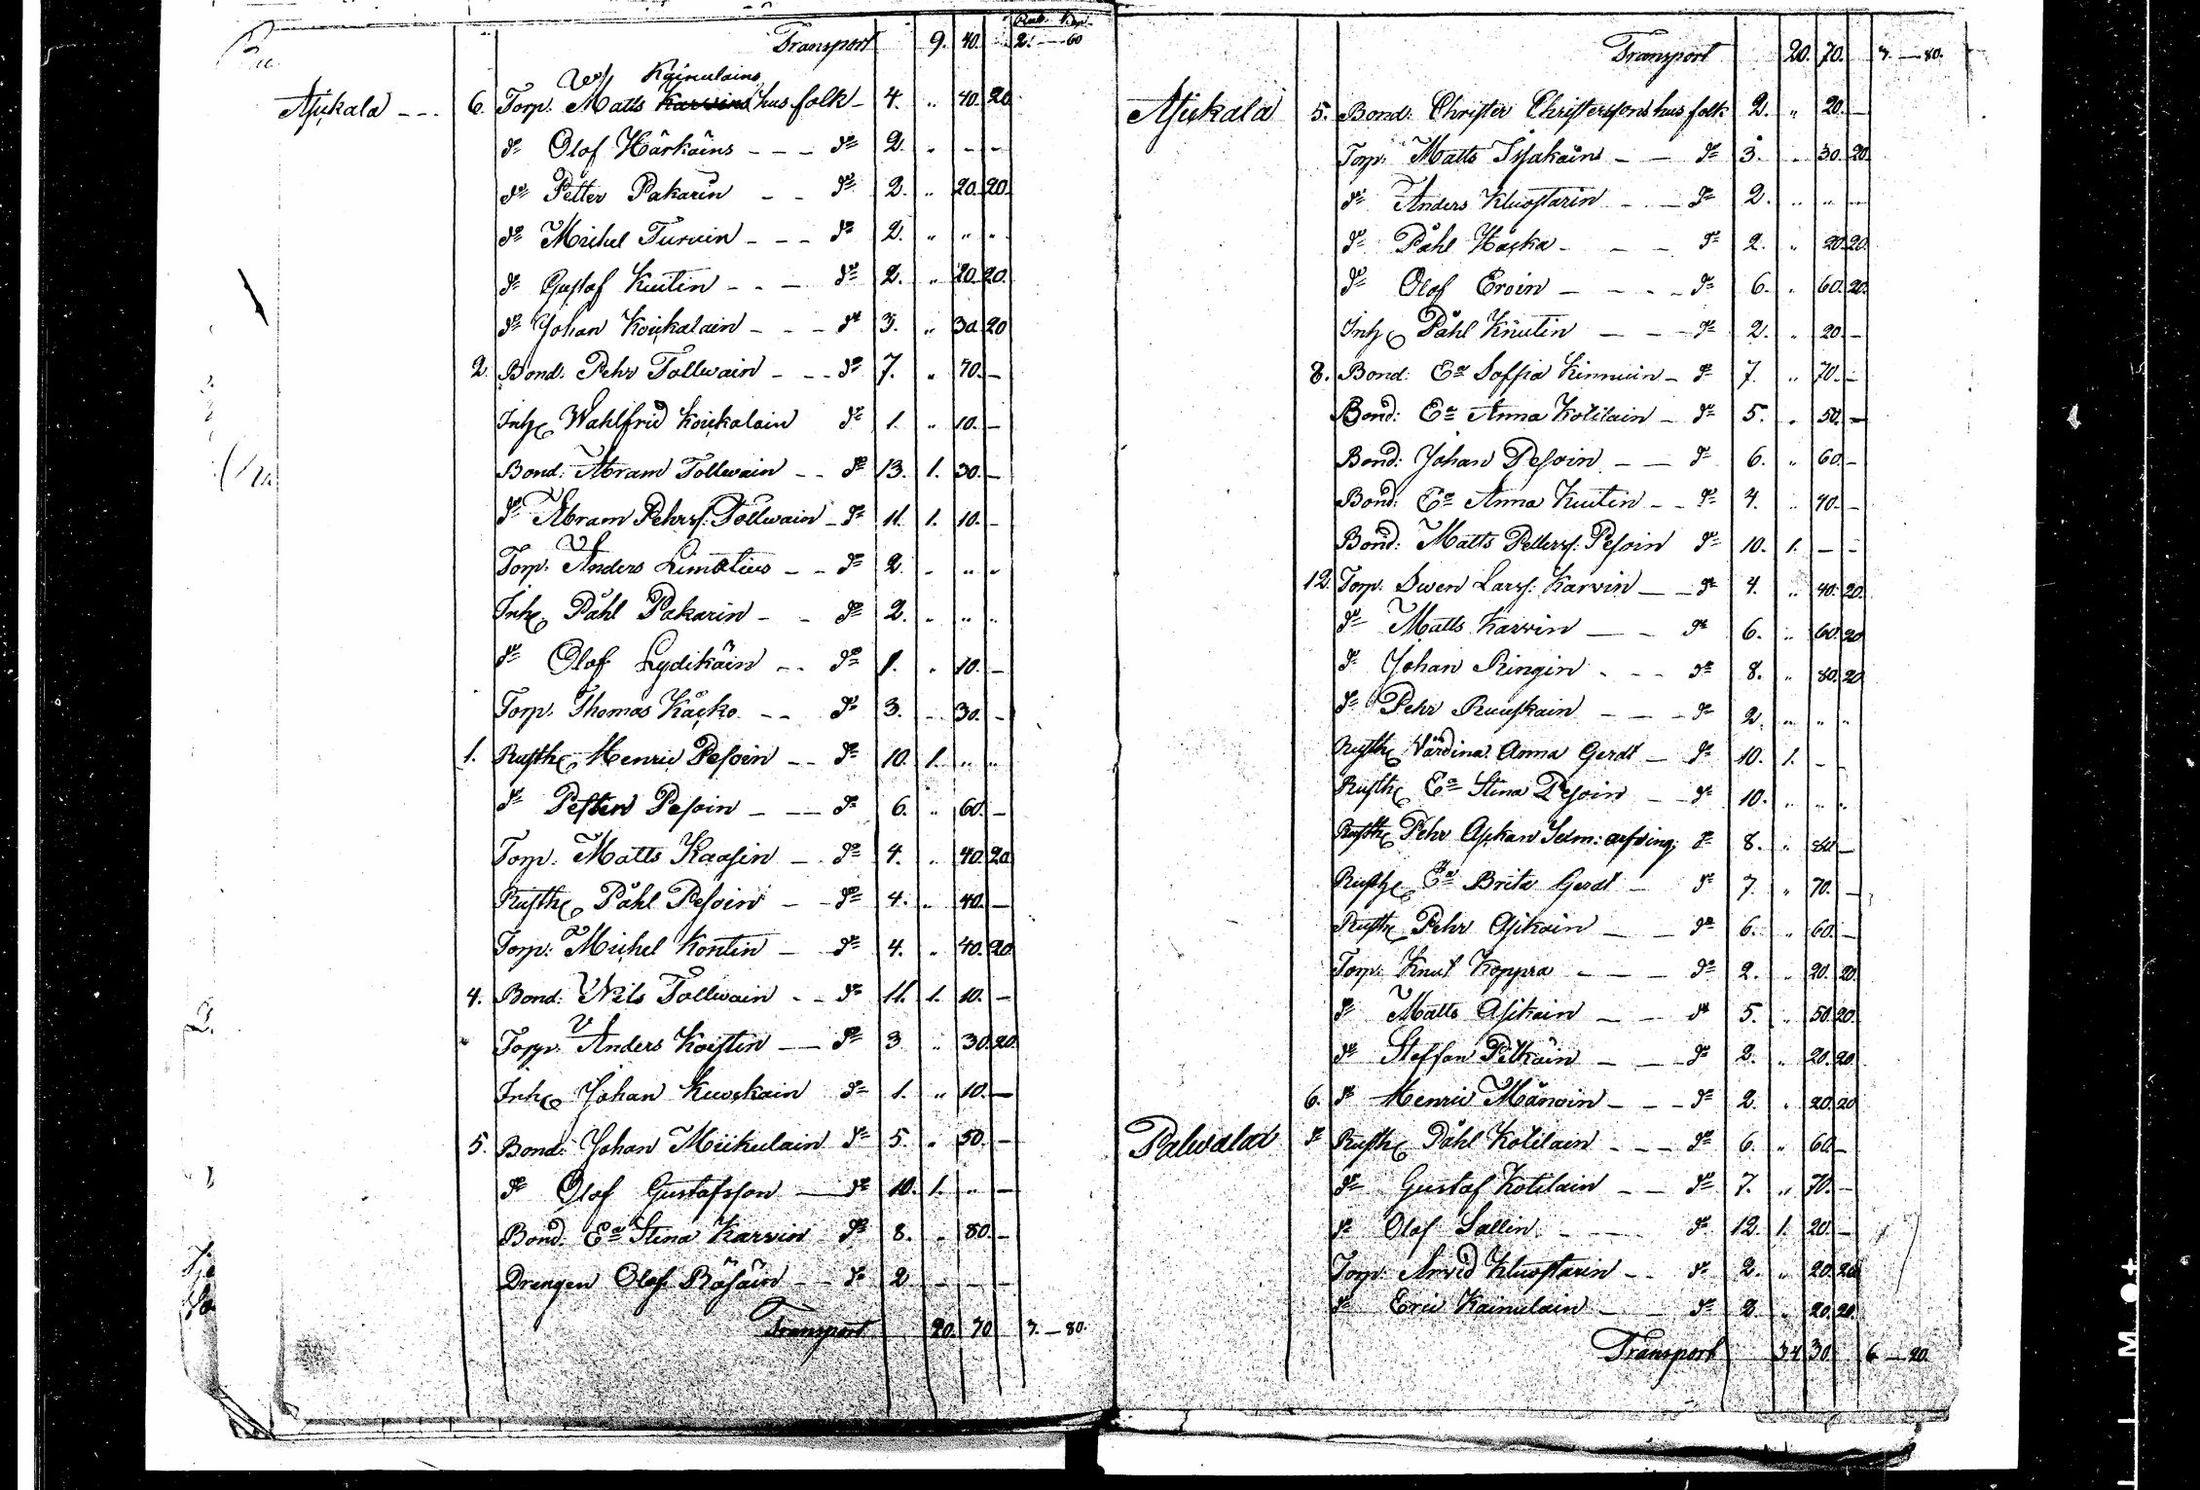 Rub. Kop.
Transport 9. 40. 2. — 60
Kainulains
Asukala --- 6. Torp. Matts Karvins hus folk - 4. " 40. 20
d:o Olof Härkäins --- d:o 2. " - -
d:o Petter Pakarin -- d:o 2. " 20. 20.
d:o Michel Turuin --- d:o 2. " " "
d:o Gustaf Kuitin --- d:o 2. " 20. 20.
d:o Johan Koukalain --- d:o 3. " 30. 20
2. Bond: Pehr Tollwain --- d:o 7. " 70. -
Inh. Wahlfrid Koukalain d:o 1. " 10. -
Bond: Abram Tollwain -- d:o 13. 1. 30. -
d:o Abram Pehrs: Tollwain - d:o 11. 1. 10. -
Torp. Anders Limatius -- d:o 2. " " "
Inh. Påhl Pakarin -- d:o 2. " " "
d:o Olof Lydikäin -- d:o 1. " 10. -
Torp. Thomas Käcko -- d:o 3. " 30. -
1. Rusth. Henric Pesoin -- d:o 10. 1. " "
d:o Petter Pesoin --- d:o 6. " 60. -
Torp. Matts Kaasin - d:o 4. " 40. 20
Rusth. Påhl Pesoin -- d:o 4. " 40. -
Torp: Michel Kontin - d:o 4. " 40. 20
4. Bond: Nils Tollwain -- d:o 11. 1. 10. -
Torp. Anders Koistin -- d:o 3 " 30. 20.
Inh. Johan Kuockain d:o 1. " 10. -
5. Bond: Johan Mikulain d:o 5. " 50. -
d:o Olof Gustafsson -- d:o 10. 1. " -
Bond: E:a Stina Karvin d:o 8. " 80. -
Drengen Olof Räsäin -- d:o 2 - - -
Transport 20. 70 3. — 80.
Transport 20. 70. 3. — 80.
Asukala 5. Bond: Christer Christerssons hus folk 2. " 20. -
Torp: Matts Issakäins -- d:o 3. " 30. 20.
d:o Anders Kluostarin --- d:o 2. " " -
d:o Påhl Kacka --- d:o 2. " 20. 20.
d:o Olof Eroin ---- d:o 6. " 60. 20.
Inh. Påhl Knutin --- d:o 2. " 20. -
8. Bond: E:a Soffia Kinnuin - d:o 7. " 70. -
Bond: E:a Anna Kotilain - d:o 5. " 50. -
Bond: Johan Pesoin -- d:o 6. " 60. -
Bond: E:a Anna Kuitin -- d:o 4. " 40. -
Bond: Matts Petters: Pesoin d:o 10. 1. - -
12. Torp. Swen Lars: Karvin -- d:o 4. " 40. 20.
d:o Matts Karvin -- d:o 6. " 60. 20
d:o Johan Ringin --- d:o 8. " 80. 20
d:o Pehr Ruuskain --- d:o 2. " " "
Rusth. Värdina: Anna Gerdt - d:o 10. 1. - -
Rusth. E:a Stina Pesoin -- d:o 10. " " "
Rusth. Pehr Asikan arfving: d:o 8. " 80. -
Rusth. E:a Brita Gerdt - d:o 7. " 70. -
Rusth. Pehr Asikain -- d:o 6. " 60. -
Torp. Knut Koppra --- d:o 2. " 20. 20.
d:o Matts Asikain -- d:o 5. " 50. 20.
d:o Steffan Pitkäin -- d:o 2. " 20. 20
6. d:o Henric Mänoin --- d:o 2. " 20. 20
Palwala d:o Rusth. Påhl Kotilain --- d:o 6. " 60. -
d:o Gustaf Kotilain -- d:o 7. " 70. -
d:o Olof Sallin --- d:o 12. 1. 20. -
Torp: Arvid Kluostarin -- d:o 2. " 20. 20
d:o Eric Kainulain -- d:o 2 " 20. 20.
Transport 34 30. 6 — 20.